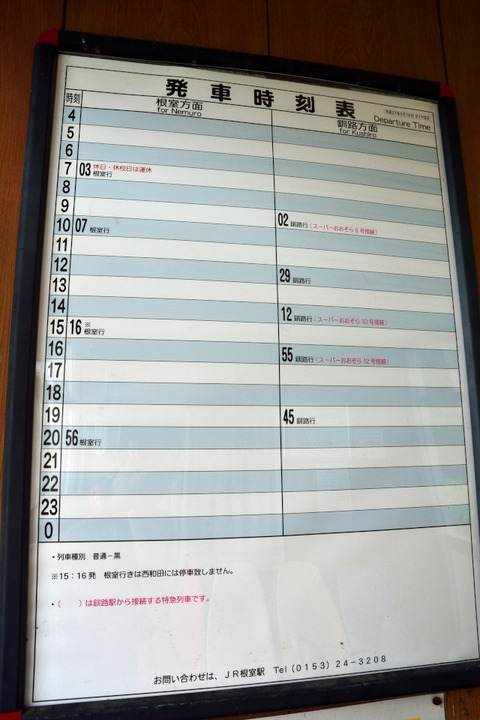 発車時刻表
Departure Time
時刻 根室方面 釧路方面
for Nemuro for Kushiro
4
5
6
7 03 休日・休校日は運休
根室行
8
9
10 07 根室行 02 釧路行(スーパーおおぞら6号接続)
11
12 29 釧路行
13
14 12 釧路行(スーパーおおぞら10号接続)
15 16 ※
根室行
16 55 釧路行(スーパーおおぞら12号接続)
17
18
19 45 釧路行
20 56 根室行
21
22
23
0
・列車種別 普通－黒
※15：16発 根室行きは西和田には停車致しません。
・（ ）は釧路駅から接続する特急列車です。
お問い合わせは、JR根室駅 Tel（0153）24－3208